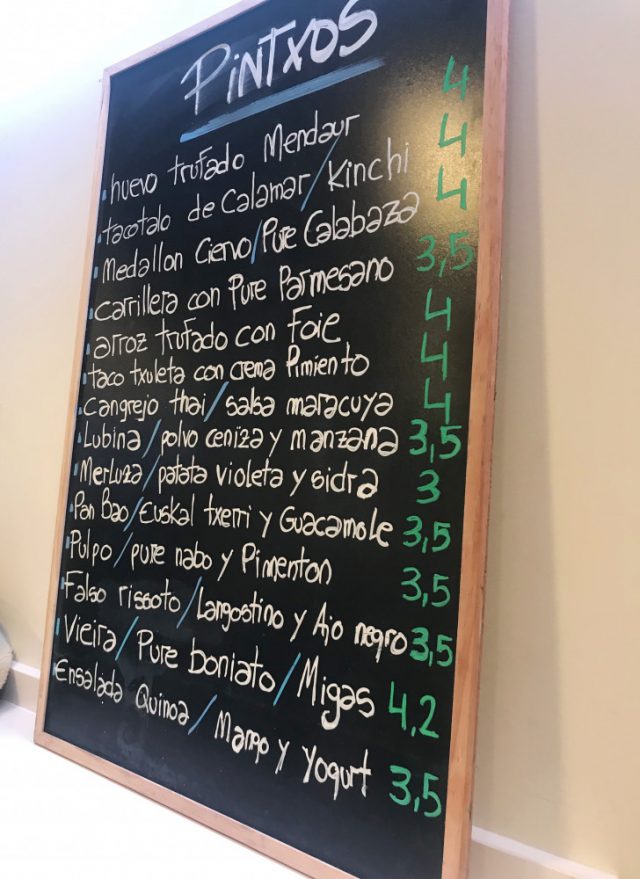 PINTXOS
huevo trufado Mendaur 4
tacotalo de Calamar/Kinchi 4
Medallon Ciervo/Pure Calabaza 4
Carrillera con Pure Parmesano 3,5
arroz trufado con Foie 4
taco txuleta con crema Pimiento 4
Cangrejo thai/salsa maracuya 4
Lubina/polvo ceniza y manzana 3,5
Merluza/patata violeta y sidra 3
Pan Bao/Euskal txerri y Guacamole 3,5
Pulpo/pure nabo y Pimenton 3,5
Falso rissoto/Langostino y Ajo negro 3,5
Vieira/Pure boniato/Migas 4,2
Ensalada Quinoa/Mango y Yogurt 3,5